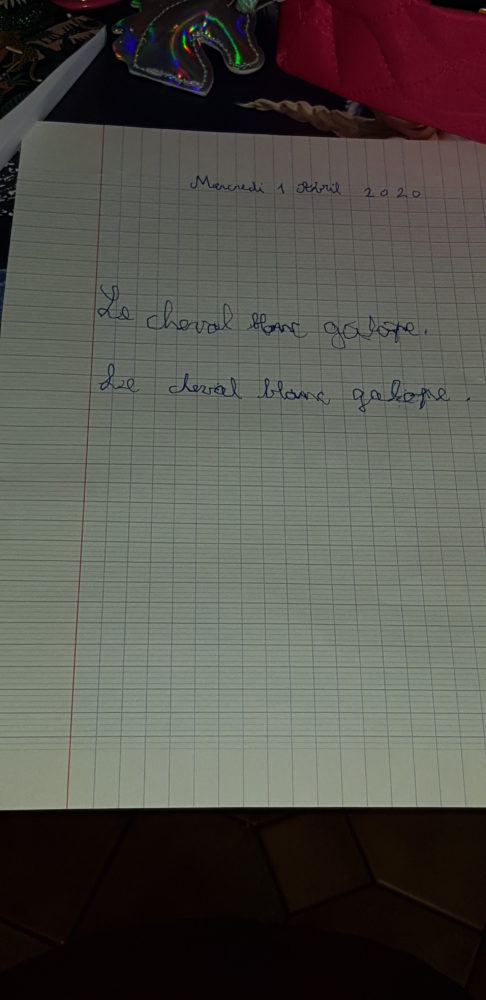 Mercredi 1 Avril 2020
Le cheval blanc galope.
Le cheval blanc galope.